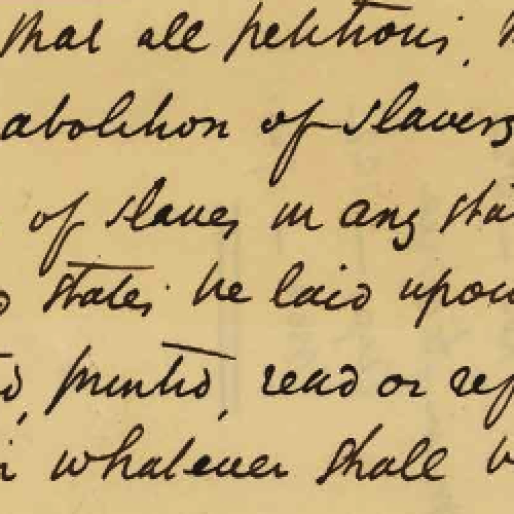 that all petitions,
abolition of slavery
of slaves in any sta
states be laid upon
printed, read or ref
whatever shall